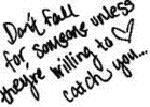 Don't fall
for someone unless
they're willing to
catch you...